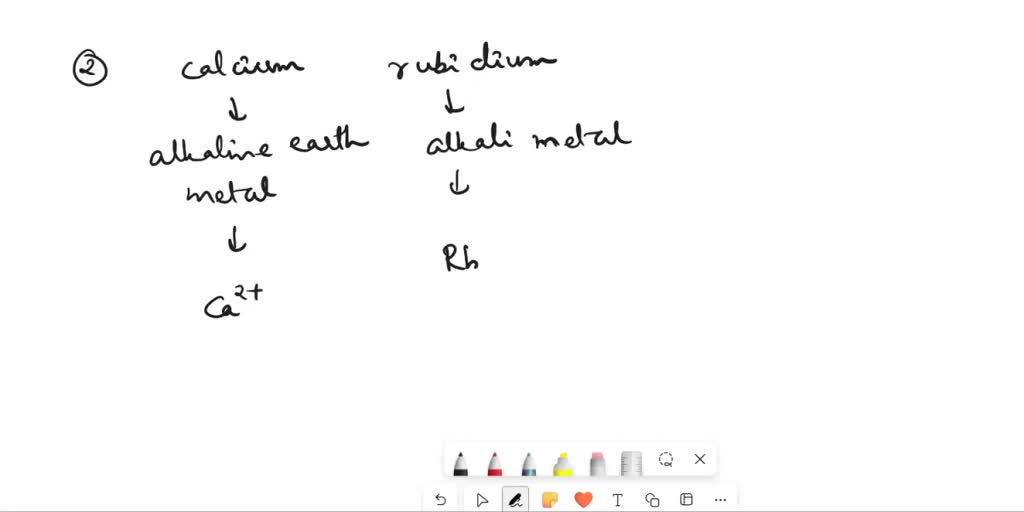 ② calcium rubidium
↓ ↓
alkaline earth alkali metal
metal ↓
↓
Rb
Ca²⁺
T